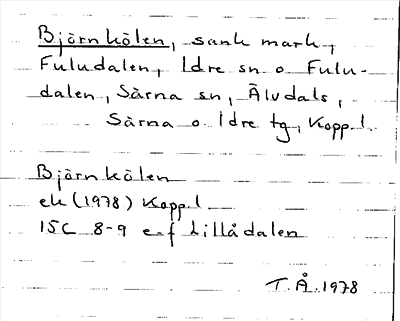 Björnkölen, sank mark,
Fuludalen, Idre sn o Fulu-
dalen, Särna sn, Älvdals,
Särna o Idre tg, Kopp.l.
Björnkölen
ek (1978) Kopp.l
15C 8-9 e-f Lillådalen
T.Å.1978